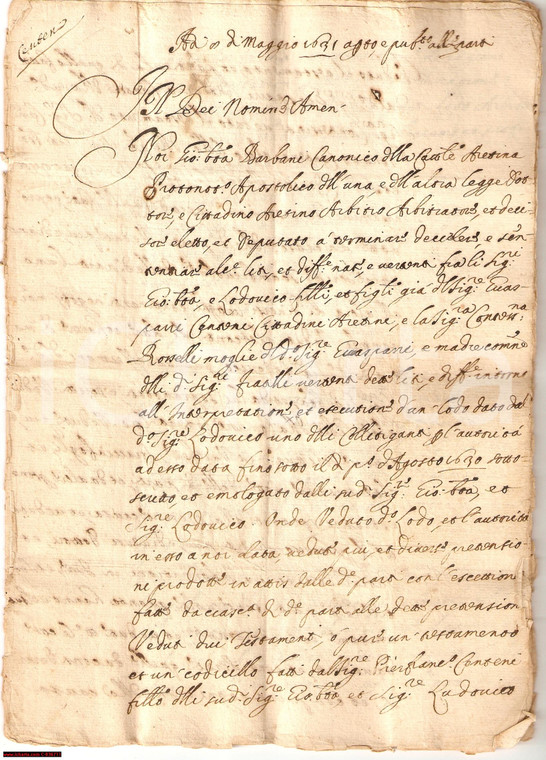 Centeni
Adi di Maggio 1631 alle parti
In Dei Nomine Amen
Noi Gio: bta Barbani Canonico della Catte Aretina
Protonot.o Apostolico dell una e dell altra legge Dot
tor, e Cittadino Aretino Arbitro Arbitrator, et deci
sor eletto, et Deputato à terminar decider, e sen
tentiar alc.e liti, et diff.e nat, e vertenti fra li Sig.ri
Gio: bta, e Lodovico fr.lli, et figli già del Sig.re Guas
parri Centeni Cittadini Aretini, e la Sig.ra Contessa
Rosselli moglie del d.o Sig.re Guasparri, e madre com.ne
delli d. Sig.ri fratelli vertenti dette liti e diff.e intorno
all Interpretatione, et esecutione d'un Lodo dato dal
d.o Sig.re Lodovico uno delli Collitiganti l'autorità
adesso data fino sotto il dì p.o d'Agosto 1630 sotto
scritto, et emologato dalli sud. Sig.ri Gio: bta, et
Sig.re Lodovico. Onde Veduto d.o Lodo, et l'autorità
in esso a noi data, et diverse pretentio
ni prodotte in attis dalle d.e parti con l'eccettioni
fatte da ciasc.a di d.e parti alle dette pretensioni
Veduti dui Testamenti, o pur un testamento
et un codicillo fatti dal Sig.re Centeni
fr.llo delli sud. Sig.ri Gio: bta et Sig.re Ludovico